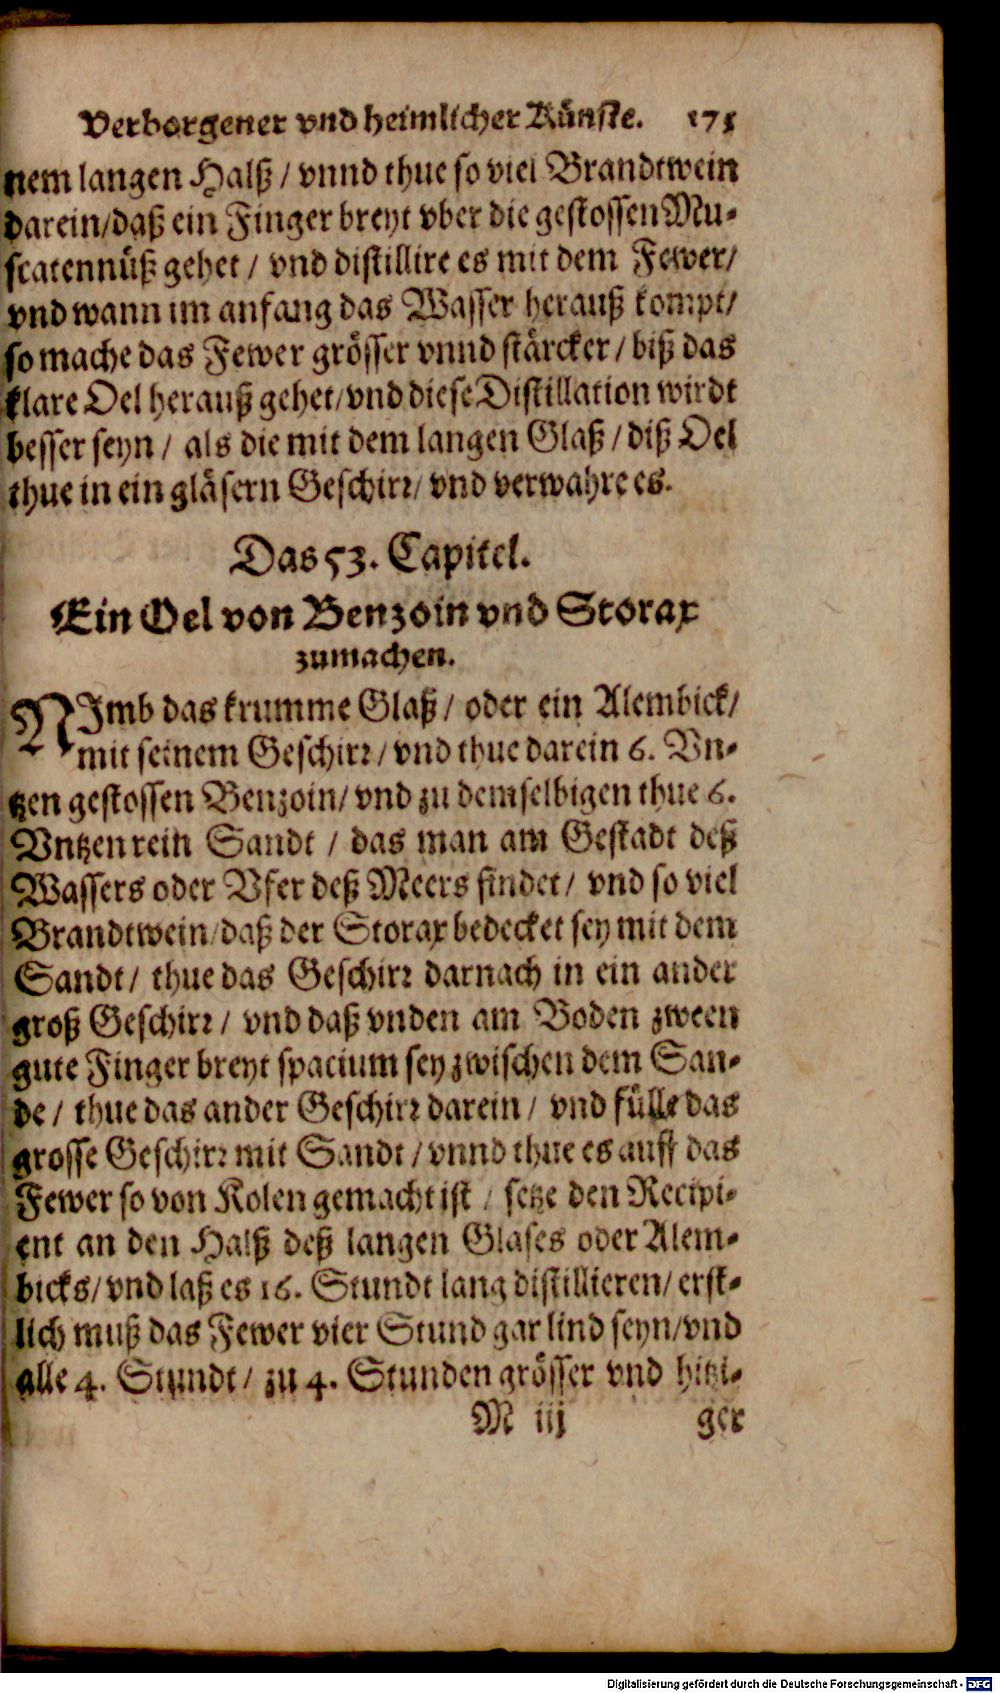 Verborgener vnd heimlicher Künste. 175
nem langen Halß / vnnd thue so viel Brandtwein
darein/daß ein Finger breyt vber die gestossen Mu-
scatennüß gehet / vnd distillire es mit dem Fewer/
vnd wann im anfang das Wasser herauß kompt/
so mache das Fewer grösser vnnd stärcker / biß das
klare Oel herauß gehet/vnd diese Distillation wirdt
besser seyn / als die mit dem langen Glaß / diß Oel
thue in ein gläsern Geschirr/ vnd verwahre es.
Das 53. Capitel.
Ein Oel von Benzoin vnd Storax
zumachen.
NImb das krumme Glaß / oder ein Alembick/
mit seinem Geschirr / vnd thue darein 6. Vn-
tzen gestossen Benzoin/ vnd zu demselbigen thue 6.
Vntzen rein Sandt / das man am Gestadt deß
Wassers oder Vfer deß Meers findet/ vnd so viel
Brandtwein/daß der Storax bedecket sey mit dem
Sandt/ thue das Geschirr darnach in ein ander
groß Geschirr / vnd daß vnden am Boden zween
gute Finger breyt spacium sey zwischen dem San-
de / thue das ander Geschirr darein / vnd fülle das
grosse Geschirr mit Sandt / vnnd thue es auff das
Fewer so von Kolen gemacht ist / setze den Recipi-
ent an den Halß deß langen Glases oder Alem-
bicks/ vnd laß es 16. Stundt lang distillieren/ erst-
lich muß das Fewer vier Stund gar lind seyn/vnd
alle 4. Stundt / zu 4. Stunden grösser vnd hitzi-
M iij ger
Digitalisierung gefördert durch die Deutsche Forschungsgemeinschaft - DFG